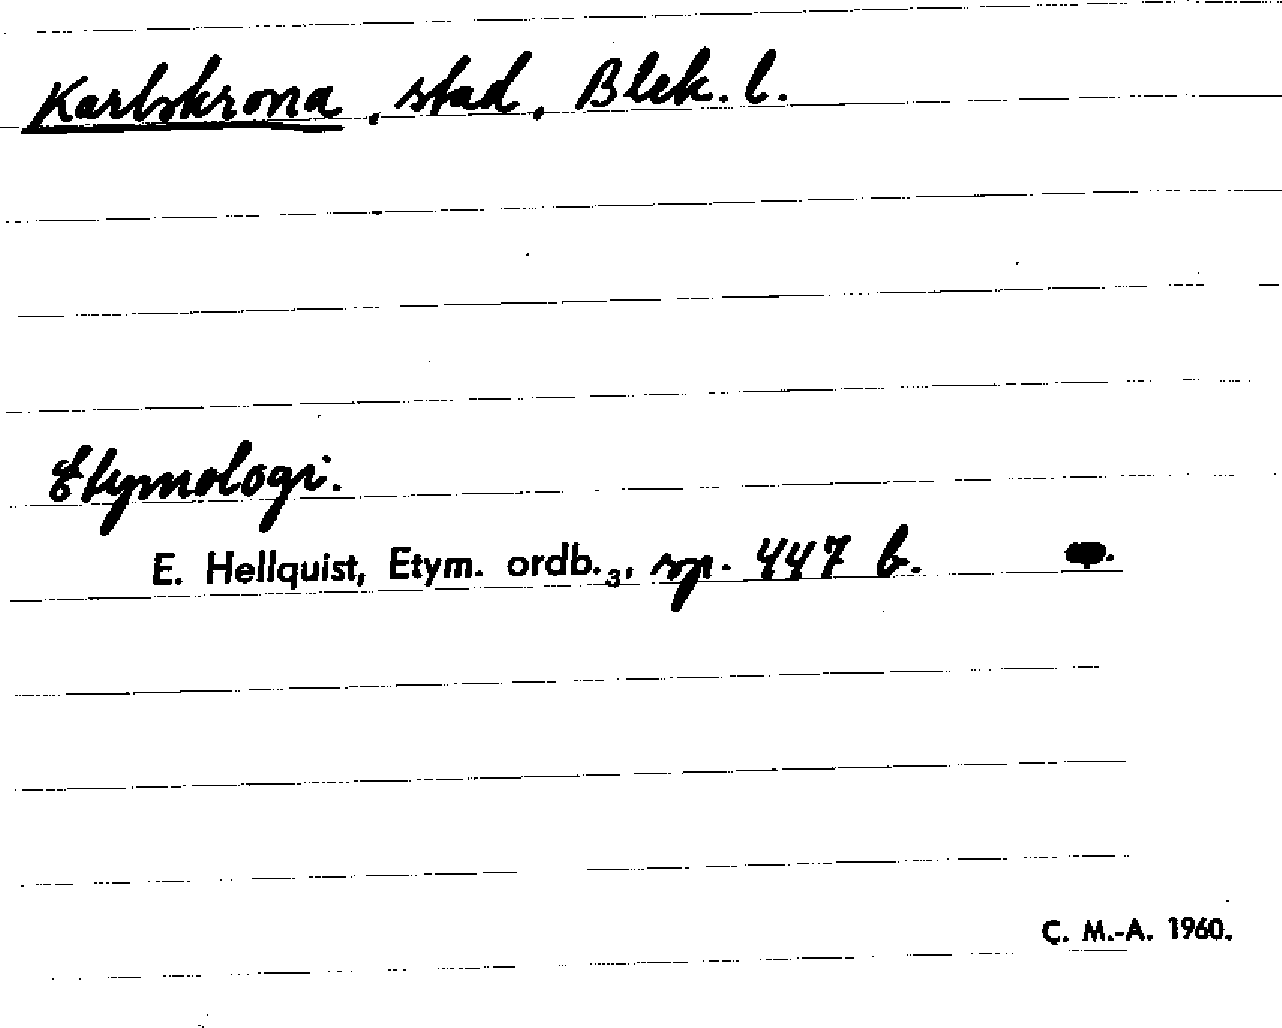 Karlskrona, stad, Blek. l.
Etymologi.
E. Hellquist, Etym. ordb.₃, sp. 447 b.
C. M.-A. 1960.